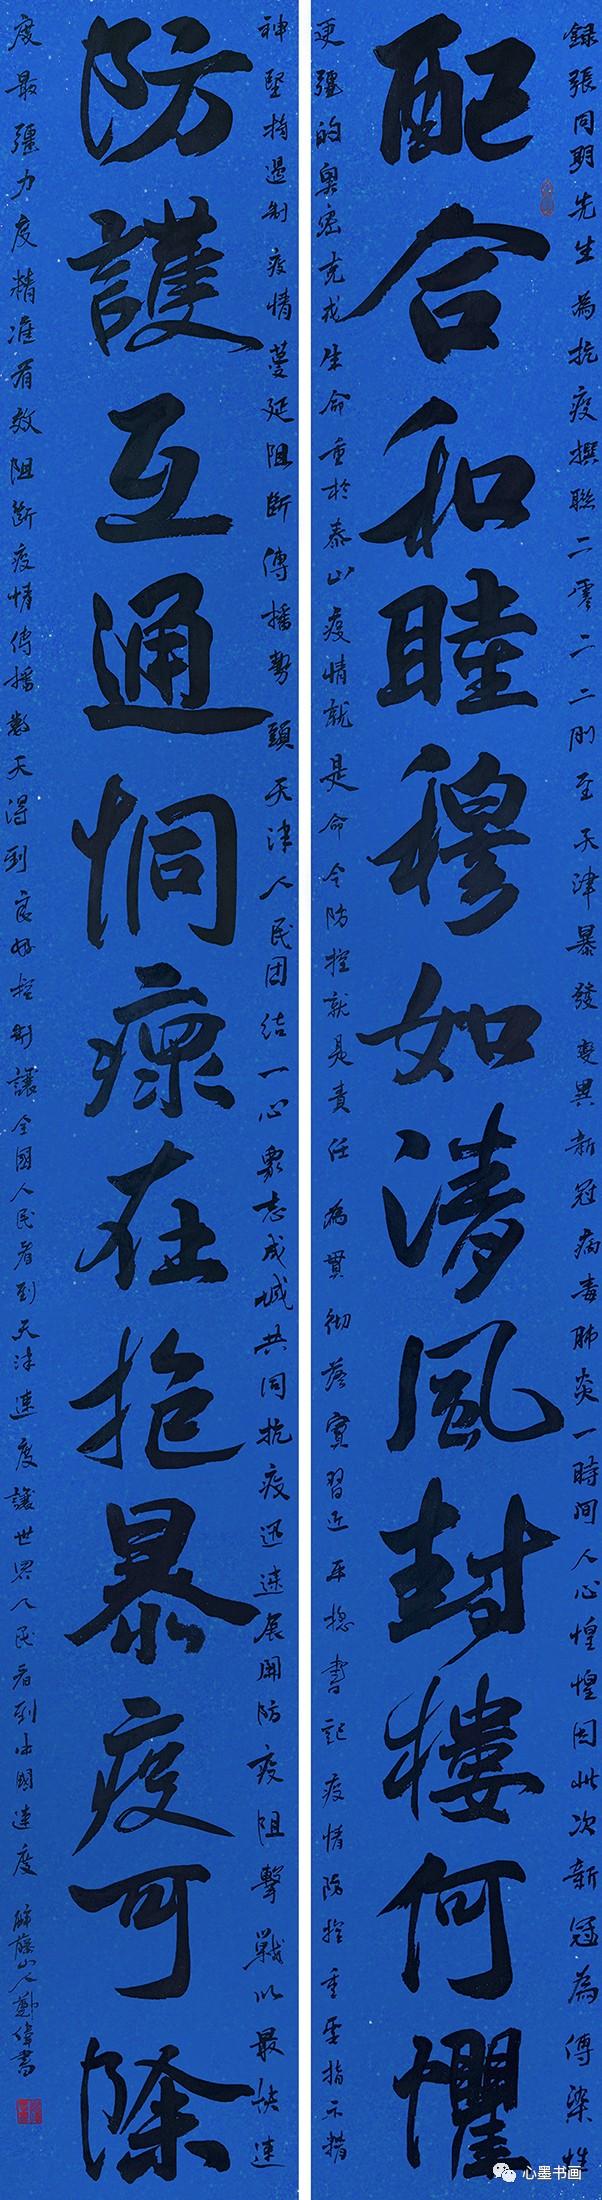 録張同明先生為抗疫撰聯二零二二剛至天津暴發變異新冠病毒肺炎一時間人心惶惶因此次新冠為傳染性
配合和睦穆如清風封樓何懼
更彊的奧密克戎生命重於泰山疫情就是命令防控就是責任為貫彻落實習近平總書記疫情防控重要指示精
神堅持遏制疫情蔓延阻斷傳播勢頭天津人民團结一心衆志成城共同抗疫迅速展開防疫阻擊戰以最快速
防護互通恫瘝在抱暴疫可除
度最彊力度精准有效阻斷疫情傳播天得到良好控制讓全國人民看到天津速度讓世界人民看到中國速度 山人鄭偉書
心墨书画